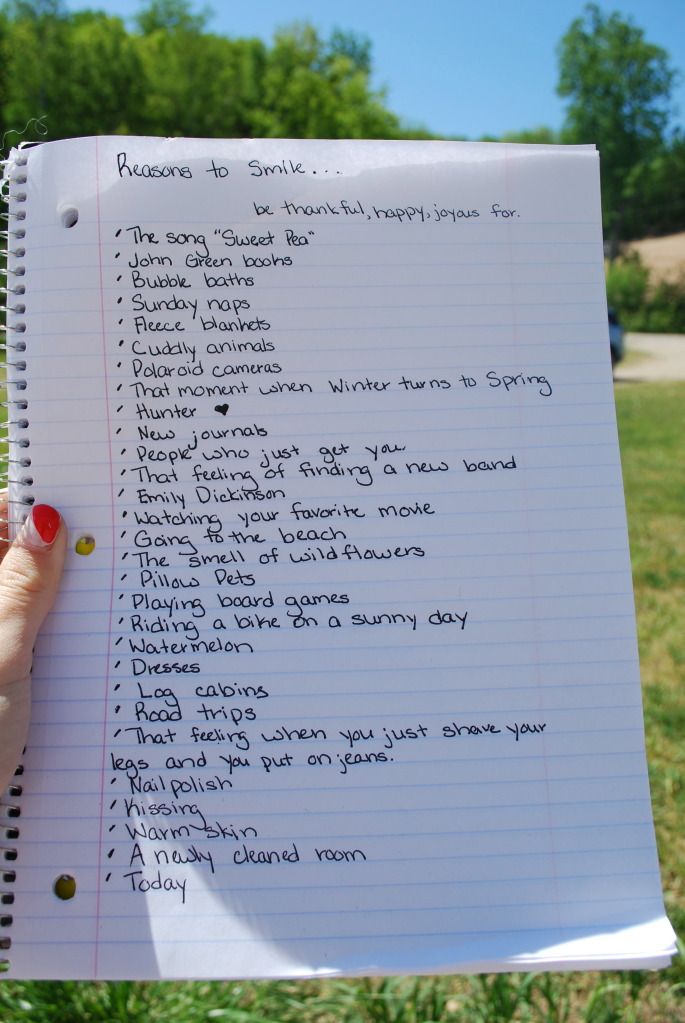 Reasons to Smile...
be thankful, happy, joyous for.
' The song "Sweet Pea"
' John Green books
' Bubble baths
' Sunday naps
' Fleece blankets
' Cuddly animals
' Polaroid cameras
' That moment when Winter turns to Spring
' Hunter ♥
' New journals
' People who just get you.
' That feeling of finding a new band
' Emily Dickinson
' Watching your favorite movie
' Going to the beach
' The smell of wildflowers
' Pillow Pets
' Playing board games
' Riding a bike on a sunny day
' Watermelon
' Dresses
' Log cabins
' Road trips
' That feeling when you just shave your
legs and you put on jeans.
' Nail polish
' Kissing
' Warm skin
' A newly cleaned room
' Today